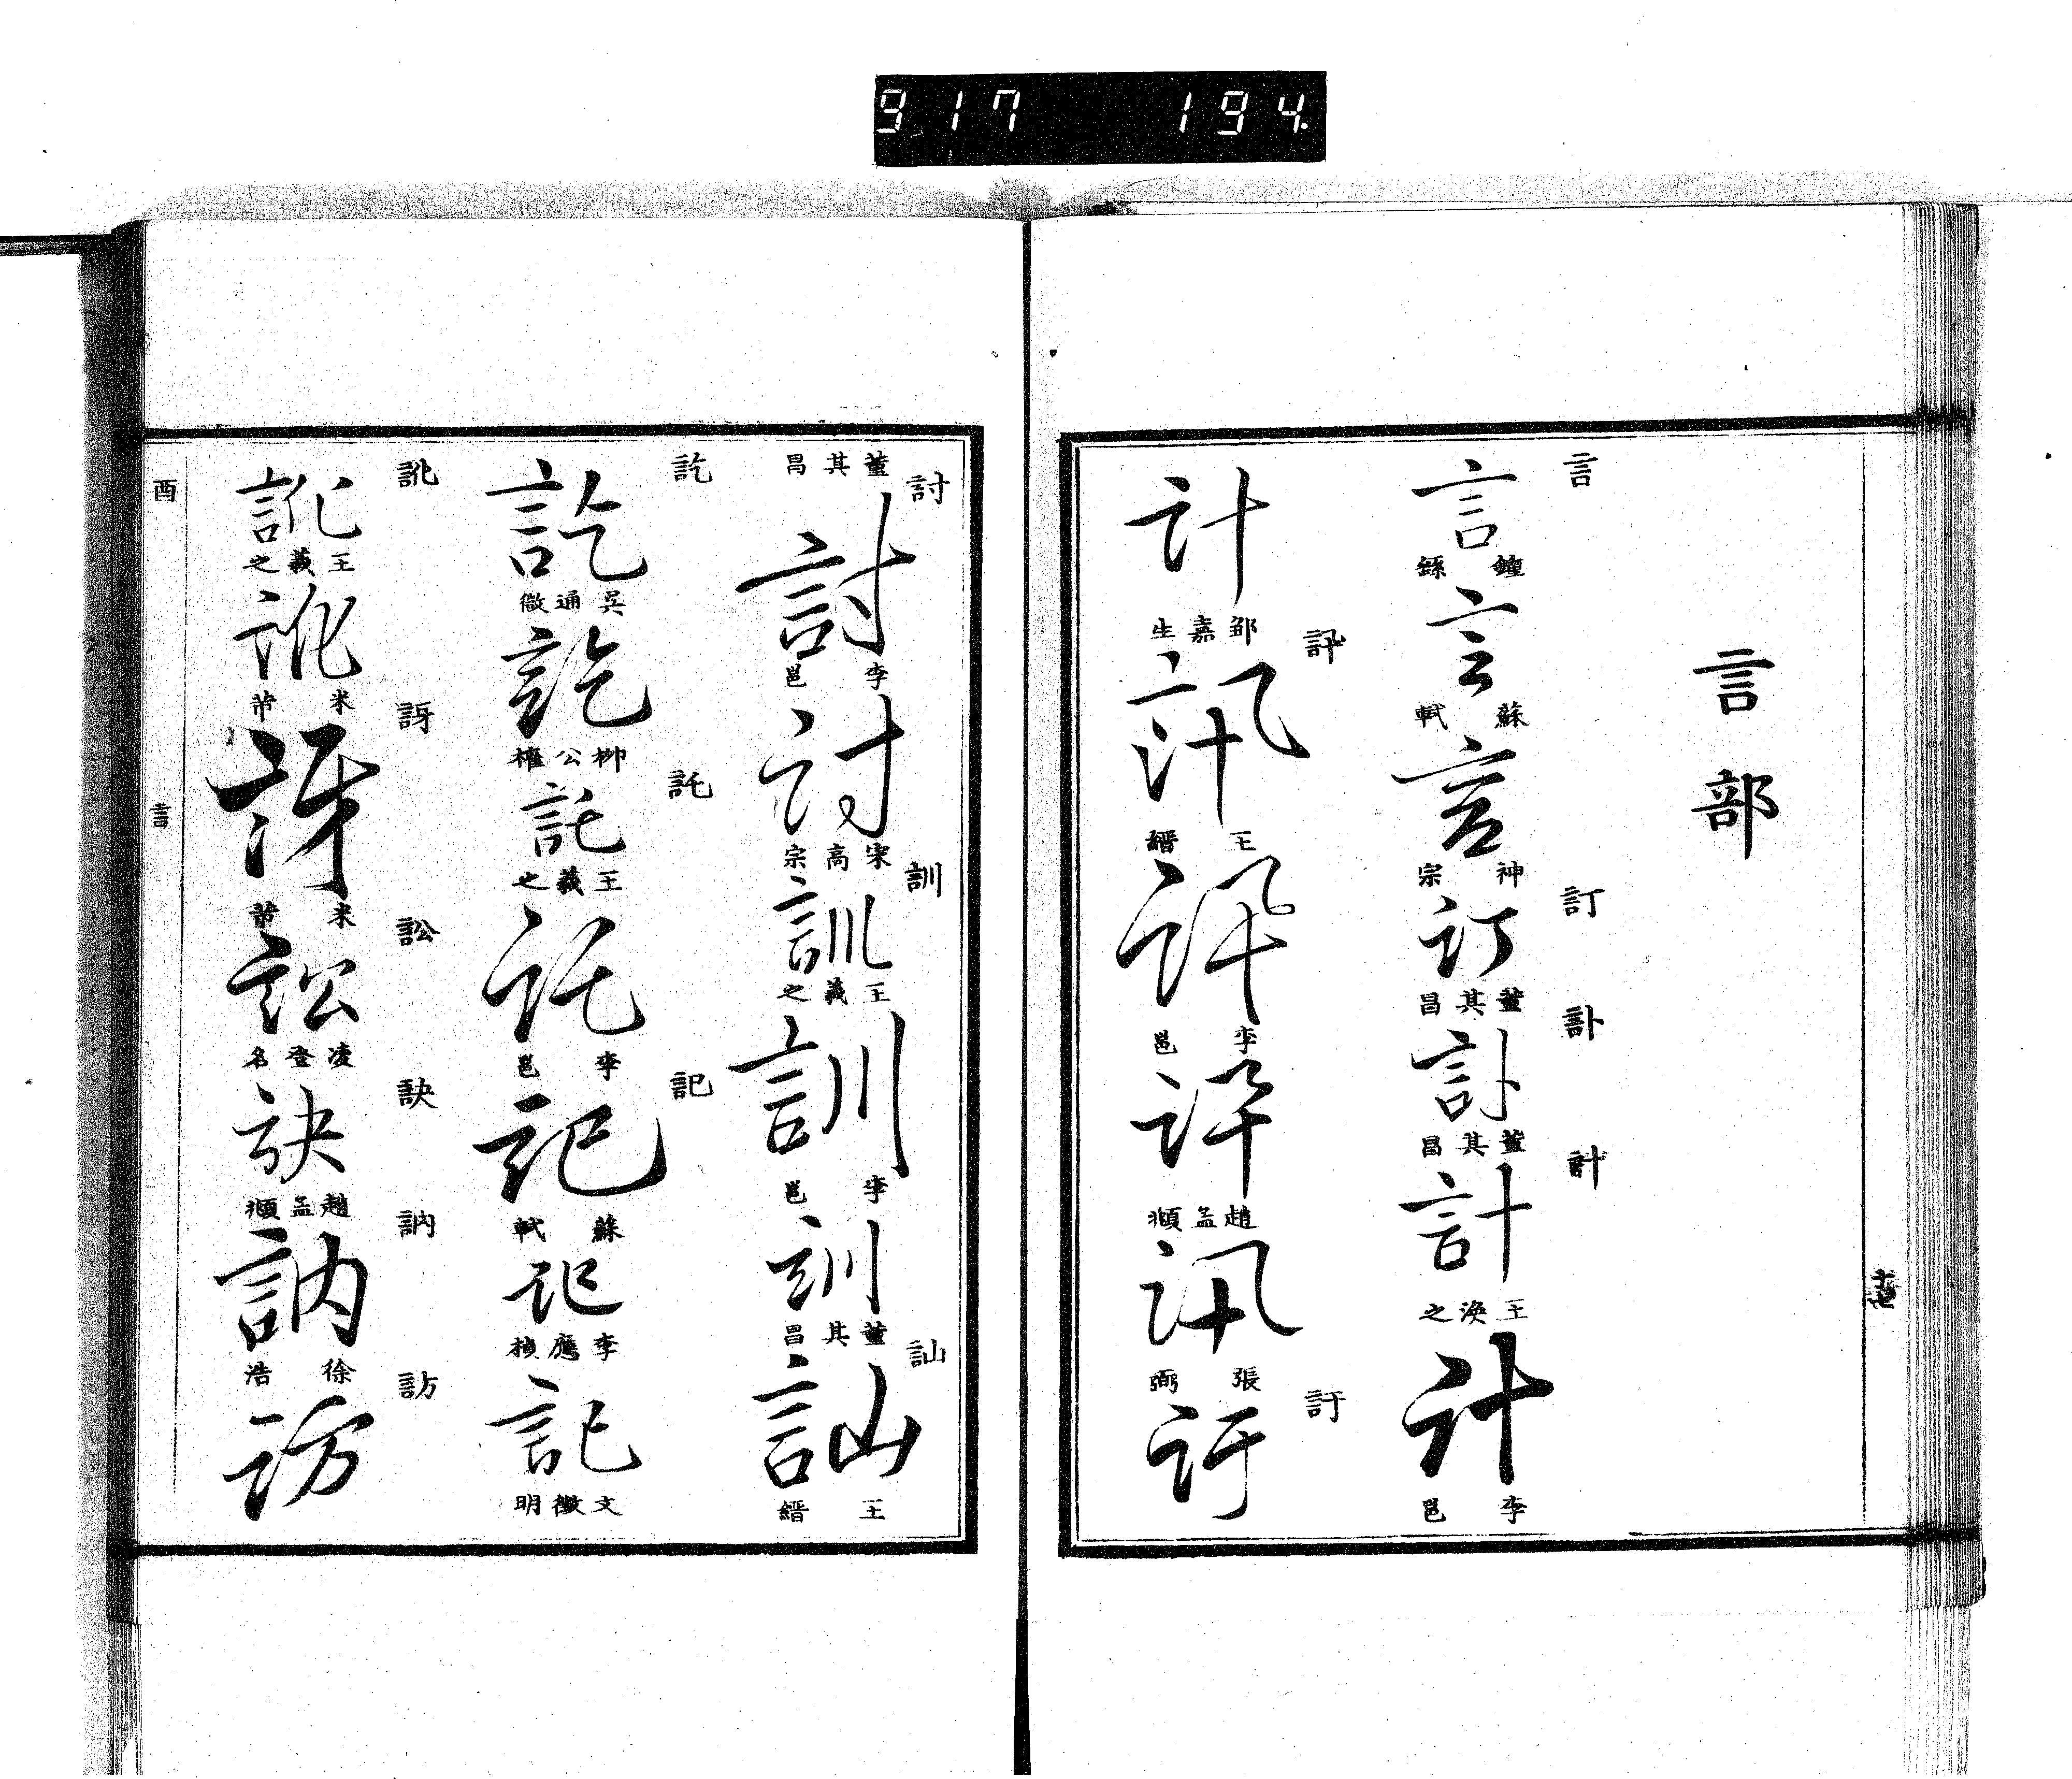 917 194
言部
言 訂 訃 計
言 鍾繇 言 蘇軾 言 神宗 訂 董其昌 訃 董其昌 計 王渙之 計 李邕
訊 訏
計 邹嘉生 訊 王縉 訊 李邕 訊 趙孟頫 訊 張弼 訏
討 訓 訕
董其昌 討 李邕 討 宋高宗 訓 王羲之 訓 李邕 訓 董其昌 訕 王縉
訖 託 記
訖 吳通微 訖 柳公權 託 王羲之 託 李邕 記 蘇軾 記 李應楨 記 文徵明
訛 訝 訟 訣 訥 訪
訛 王羲之 訛 米芾 訝 米芾 訟 凌登名 訣 趙孟頫 訥 徐浩 訪
酉 言